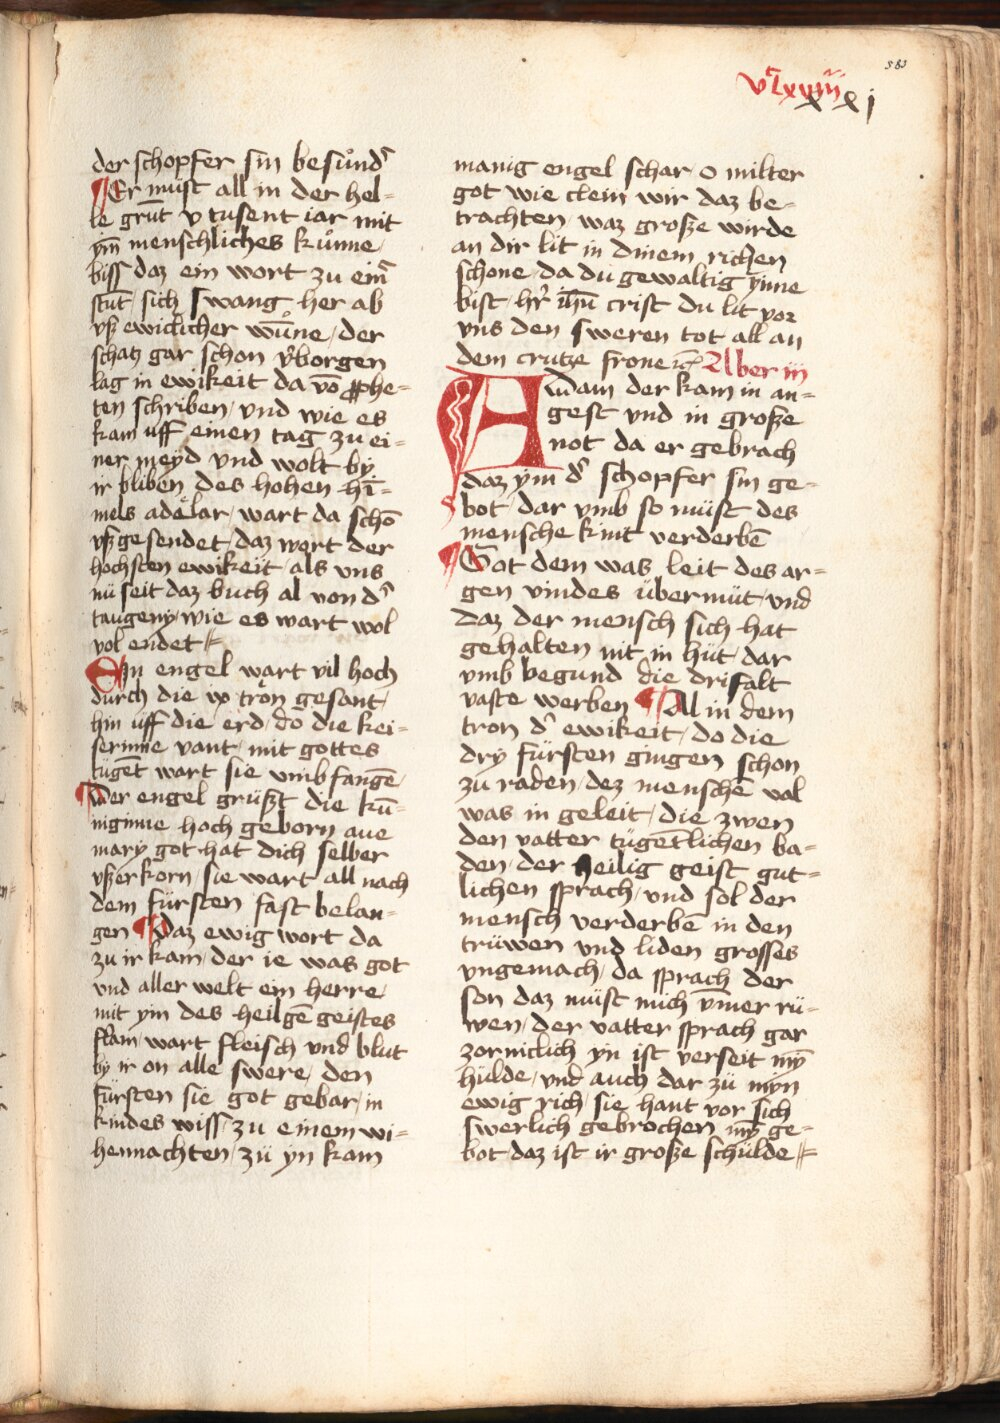 583
der schopfer sin besůnder
Er müst all in der hel-
le grūt v tusent iar mit
ym̄ menschliches kůnne /
biss daz ein wort zu einr
stūt / sich swang her ab
vß ewiclicher wůne / der
schatz gar schon v̉borgen
lag in ewikeit da vō p̱phe-
ten schriben / vnd wie es
kam uff einen tag zu ei-
ner meyd vnd wolt by
ir bliben des hohen hi-
mels adelar / wart da schō
vß gesendet / daz wort der
hochsten ewikeit / als vns
nü seit daz buch al von d̉
taugeny / wie es wart wol
vol endet
Ein engel wart vil hoch
durch die ix tron gesant /
hin uff die erd / do die kei-
serinne vant / mit gottes
tügēt wart sie vmb fangē /
Der engel grüßt die kü-
niginne hoch geborn aue
mary got hat dich selber
vßerkorn / sie wart all nach
dem fürsten fast belan-
gen Daz ewig wort da
zu ir kam / der ie was got
vnd aller welt ein herre /
mit yin des heilgē geistes
flam / wart fleisch vnd blut
by ir on alle swere / den
fürsten sie got gebar / in
kindes wiss / zu einem wi-
hennachten / zü yn kam
manig engel schar o milter
got wie clein wir daz be-
trachten / waz große wirde
an dir lit in dinem richen
schone / da du gewaltig ynne
bist / hr̉ ihū crist du lit vor
vns den sweren tot all an
dem crutze frone Aber iij
Adam der kam in an-
gest vnd in große
not da er gebrach
daz ym d̉ schopfer sin ge-
bot / dar vmb so müst des
mensche kint verderbē
Got dem was leit des ar-
gen vindes übermüt / vnd
daz der mensch sich hat
gehalten nit in hüt / dar
vmb begund die drifalt
vaste werben Al in dem
tron d̉ ewikeit / do die
dry fürsten gingen schon
zü raden / dez menschē val
was in geleit / die zwen
den vatter tügētlichen ba-
den / der heilig geist gut-
lichen sprach / vnd sol der
mensch verderbē in den
trüwen vnd liden grosses
vngemach / da sprach der
son daz müst mich ȳmer rü-
wen / der vatter sprach gar
zorniclich yn ist verseit mȳ
hülde / vnd auch dar zü myn
ewig rich / sie hant vor sich
swerlich gebrochen mȳ ge-
bot / daz ist ir große schülde